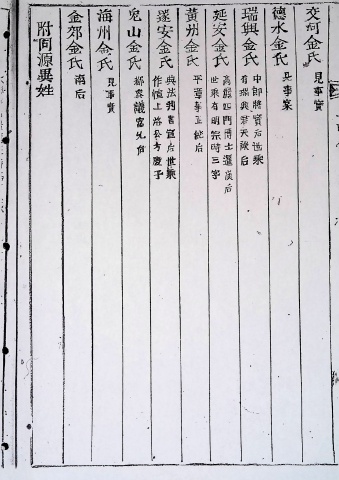 交河金氏 見事實
德水金氏 見事案
瑞興金氏 中郎將寶后世派
有瑞興君天祿后
延安金氏 高麗四門博士暹漢后
世系有明宗時三字
黃州金氏 平章事
世后
遂安金氏 典法判書宣后世派
作恒上洛公方慶子
兔山金氏
海州金氏 見事實
金郊金氏 南后
附同源異姓